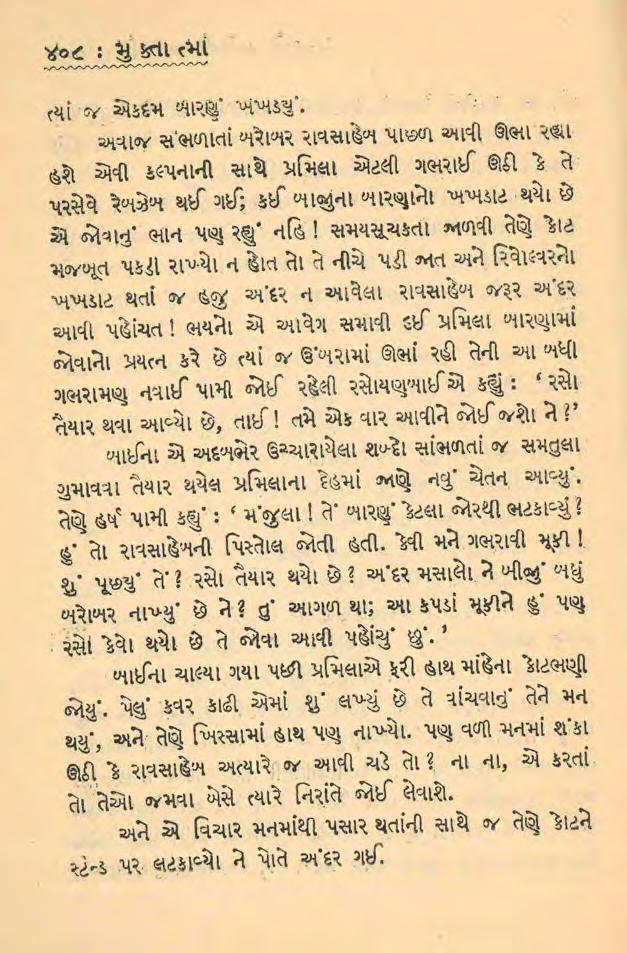 ૪૦૮ : મુક્તાત્મા
ત્યાં જ એકદમ બારણું ખખડયું.
અવાજ સંભળાતાં બરાબર રાવસાહેબ પાછળ આવી ઊભા રહ્યા
હશે એવી કલ્પનાની સાથે પ્રમિલા એટલી ગભરાઈ ઊઠી કે તે
પરસેવે રેબઝેબ થઈ ગઈ; કઈ બાજુના બારણાનો ખખડાટ થયો છે
એ જોવાનું ભાન પણ રહ્યું નહિ! સમયસૂચકતા જાળવી તેણે કોટ
મજબૂત પકડી રાખ્યો ન હોત તો તે નીચે પડી જાત અને રિવોલ્વરનો
ખખડાટ થતાં જ હજુ અંદર ન આવેલા રાવસાહેબ જરૂર અંદર
આવી પહોંચત! ભયનો એ આવેગ સમાવી દઈ પ્રમિલા બારણામાં
જોવાનો પ્રયત્ન કરે છે ત્યાં જ ઉંબરામાં ઊભાં રહી તેની આ બધી
ગભરામણ નવાઈ પામી જોઈ રહેલી રસોયણબાઈએ કહ્યું : ‘રસો
તૈયાર થવા આવ્યો છે, તાઈ! તમે એક વાર આવીને જોઈ જશો ને?’
બાઈના એ અદબભેર ઉચ્ચારાયેલા શબ્દો સાંભળતાં જ સમતુલા
ગુમાવવા તૈયાર થયેલ પ્રમિલાના દેહમાં જાણે નવું ચેતન આવ્યું.
તેણે હર્ષ પામી કહ્યું : ‘મંજુલા! તેં બારણું કેટલા જોરથી ભટકાવ્યું?
હું તો રાવસાહેબની પિસ્તોલ જોતી હતી. કેવી મને ગભરાવી મૂકી!
શું પૂછ્યું તેં? રસો તૈયાર થયો છે? અંદર મસાલો ને બીજું બધું
બરોબર નાખ્યું છે ને? તું આગળ થા; આ કપડાં મૂકીને હું પણ
રસો કેવો થયો છે તે જોવા આવી પહોંચું છું.’
બાઈના ચાલ્યા ગયા પછી પ્રમિલાએ ફરી હાથ માંહેના કોટભણી
જોયું. પેલું કવર કાઢી એમાં શું લખ્યું છે તે વાંચવાનું તેને મન
થયું, અને તેણે ખિસ્સામાં હાથ પણ નાખ્યો. પણ વળી મનમાં શંકા
ઊઠી કે રાવસાહેબ અત્યારે જ આવી ચડે તો? ના ના, એ કરતાં
તો તેઓ જમવા બેસે ત્યારે નિરાંતે જોઈ લેવાશે.
અને એ વિચાર મનમાંથી પસાર થતાંની સાથે જ તેણે કોટને
સ્ટેન્ડ પર લટકાવ્યો ને પોતે અંદર ગઈ.